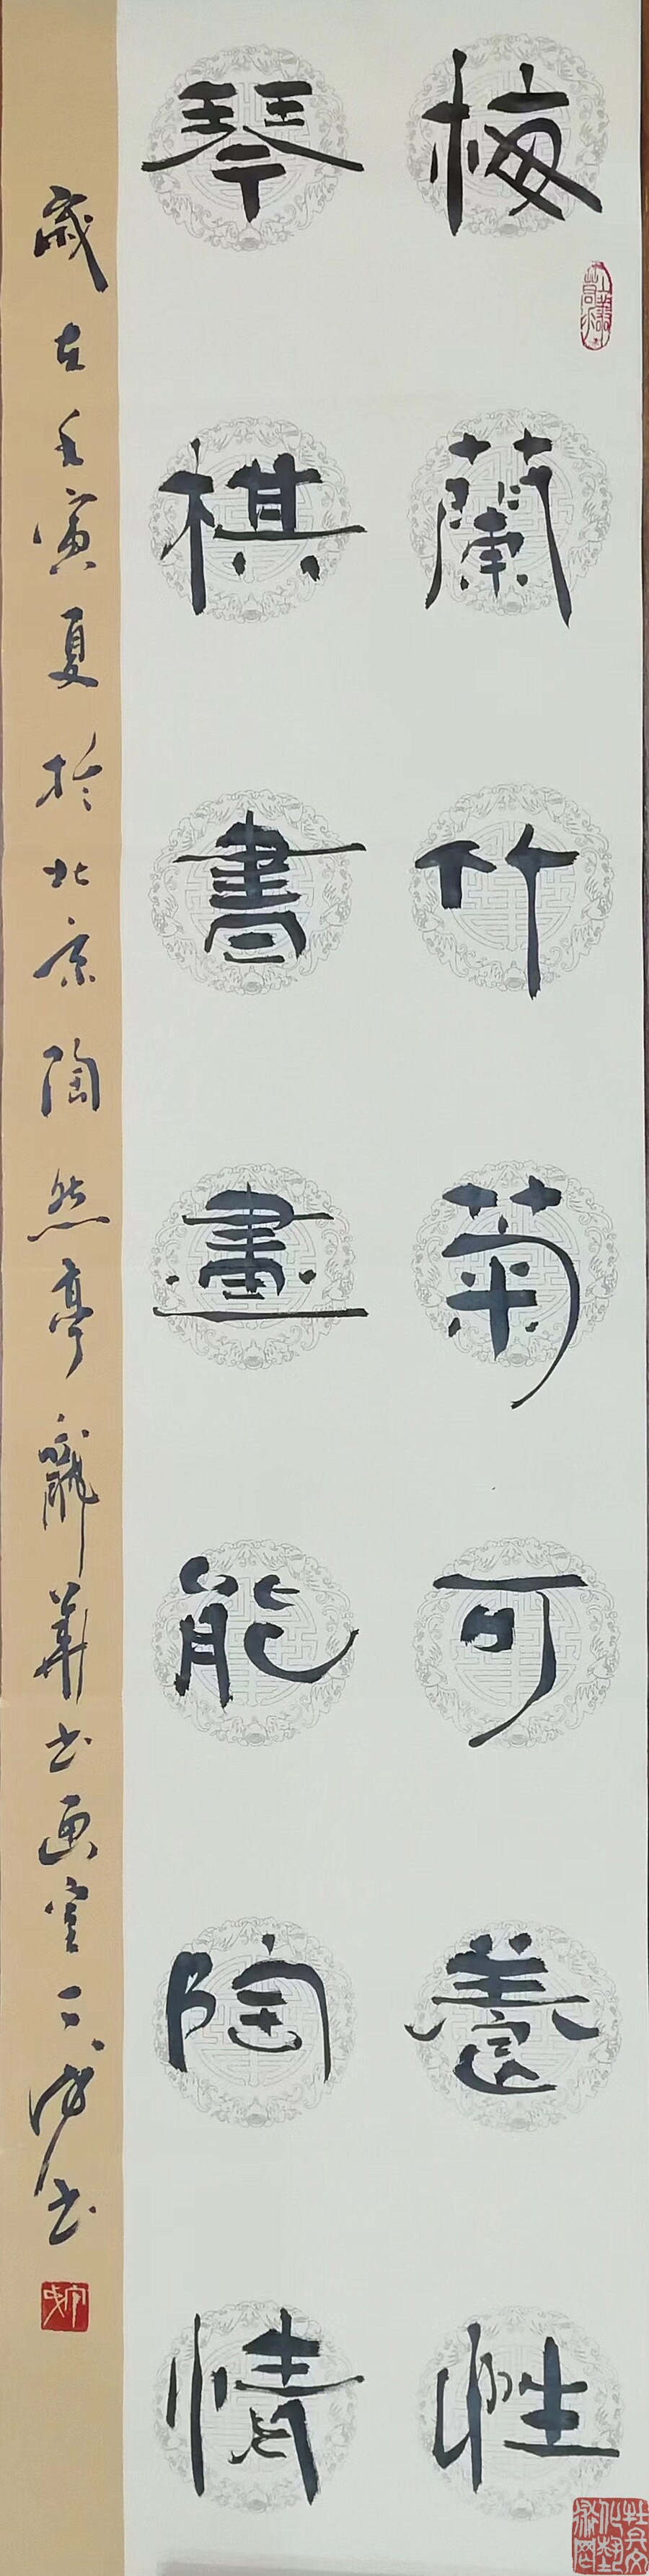 梅蘭竹菊可養性
琴棋書畫能陶情
歲在壬寅夏於北京陶然亭
華书画室
书